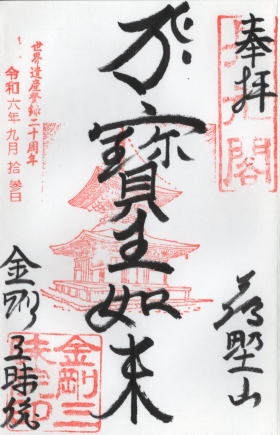 奉拝
高野山
寶生如来
世界遺産登録二十周年
令和六年九月拾参日
金剛三昧院
金剛三
昧院印